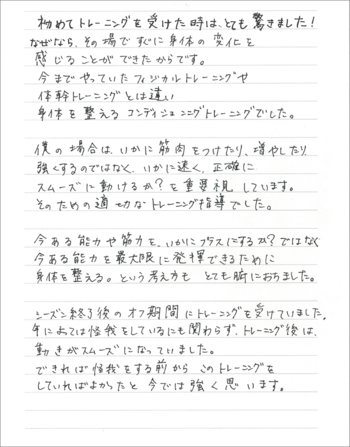 初めてトレーニングを受けた時は、とても驚きました!
なぜなら、その場ですぐに身体の変化を
感じることができたからです。
今までやっていたフィジカルトレーニングや
体幹トレーニングとは違い
身体を整えるコンディショニングトレーニングでした。
僕の場合は、いかに筋肉をつけたり、増やしたり
強くするのではなく、いかに速く、正確に
スムーズに動けるか?を重要視しています。
そのための適切なトレーニング指導でした。
今ある能力や筋力を、いかにプラスにするか?ではなく
今ある能力を最大限に発揮できるために
身体を整える。という考え方も とても腑におちました。
シーズン終了後のオフ期間にトレーニングを受けていました。
年によっては怪我をしているにも関わらず、トレーニング後は、
動きがスムーズになっていました。
できれば怪我をする前から このトレーニングを
していればよかったと 今では強く思います。